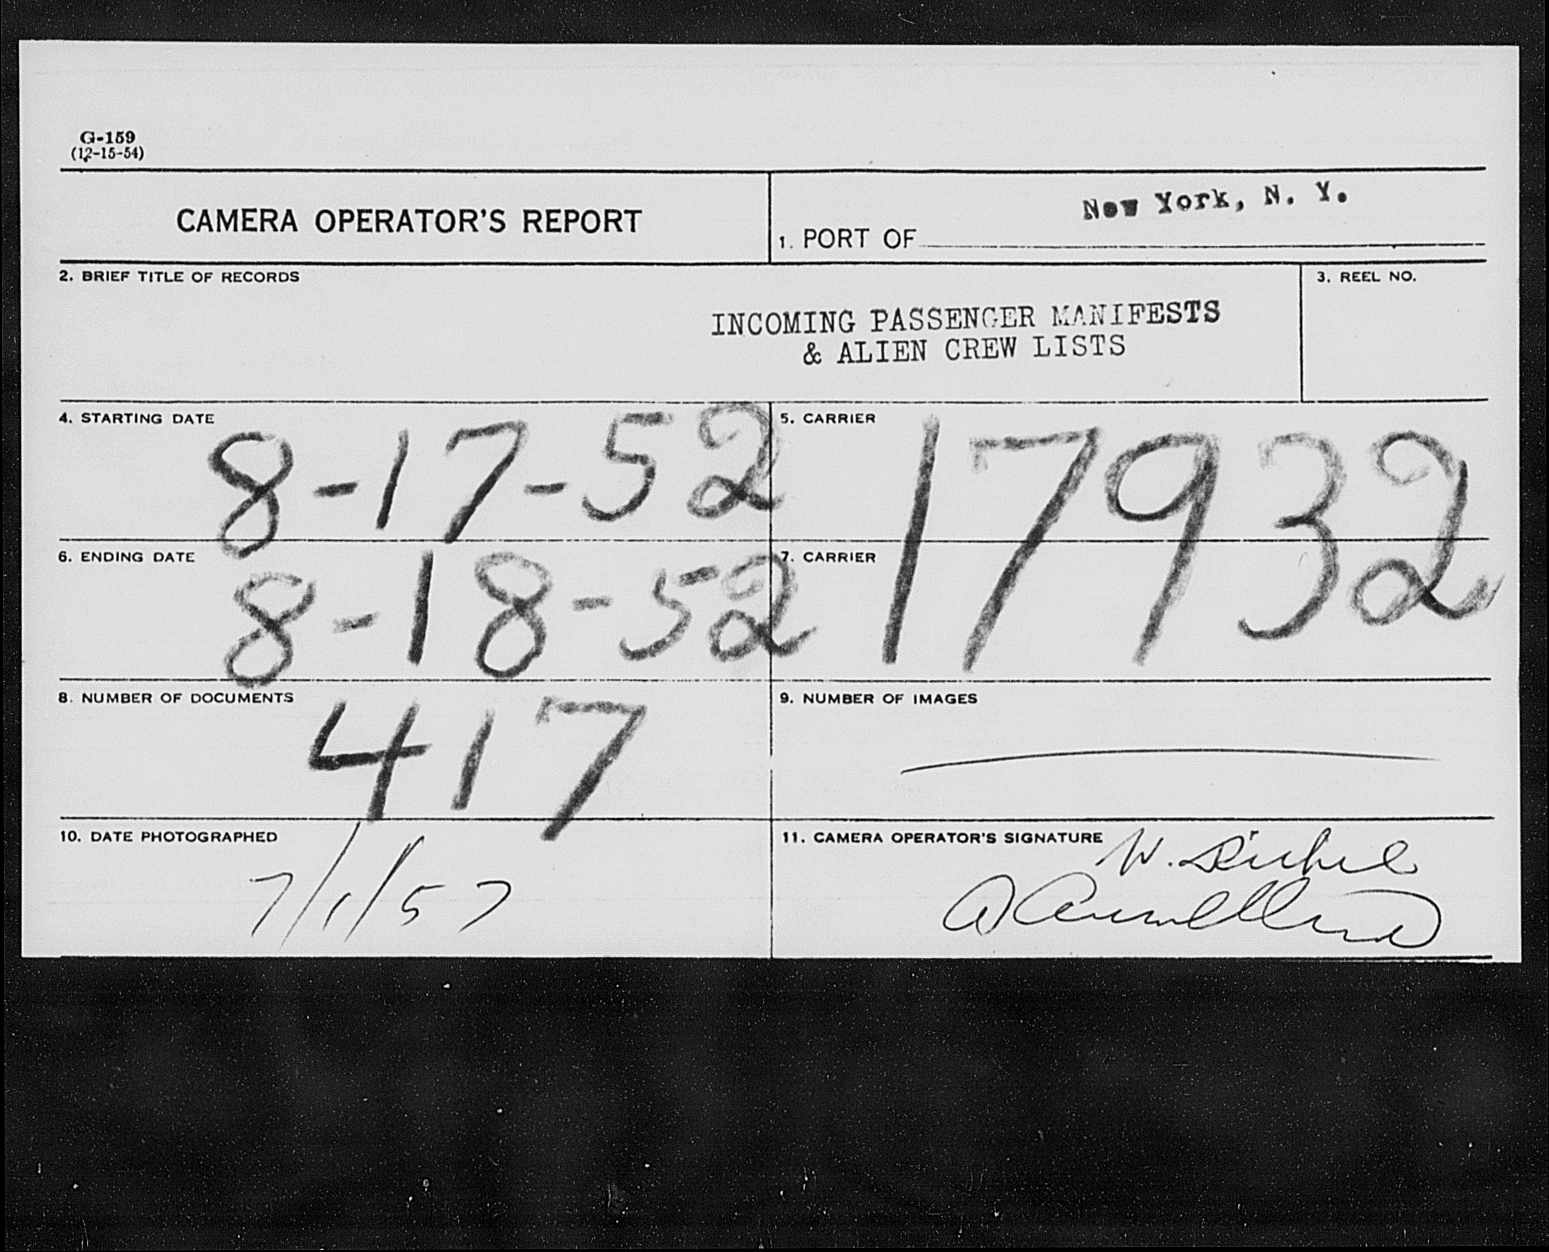 G-159
(12-15-54)
CAMERA OPERATOR'S REPORT
1. PORT OF New York, N. Y.
2. BRIEF TITLE OF RECORDS
INCOMING PASSENGER MANIFESTS
& ALIEN CREW LISTS
3. REEL NO.
4. STARTING DATE
8-17-52
5. CARRIER
17932
6. ENDING DATE
8-18-52
7. CARRIER
8. NUMBER OF DOCUMENTS
417
9. NUMBER OF IMAGES
10. DATE PHOTOGRAPHED
7/1/57
11. CAMERA OPERATOR'S SIGNATURE
W.